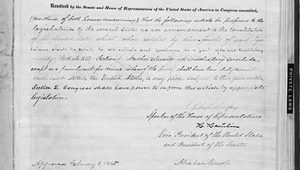 Resolved by the Senate and House of Representatives of the United States of America in Congress assembled,
(two thirds of both houses concurring) that the following article be proposed to the
legislatures of the several States as an amendment to the constitution
of the United States, which, when ratified by three-fourths of said
shall be valid, to all intents and purposes as a part of said constitution
Article XIII. Section 1. Neither slavery nor involuntary servitude,
except as a punishment for crime whereof the party shall have been duly
shall exist within the United States, or any place subject to their jurisdiction.
Section 2. Congress shall have power to enforce this article by appropriate
legislation.
Schuyler Colfax
Speaker of the House of Representatives
H. Hamlin
Vice President of the United States
and President of the Senate
Approved February 1, 1865
Abraham Lincoln
PRIVATE LAWS